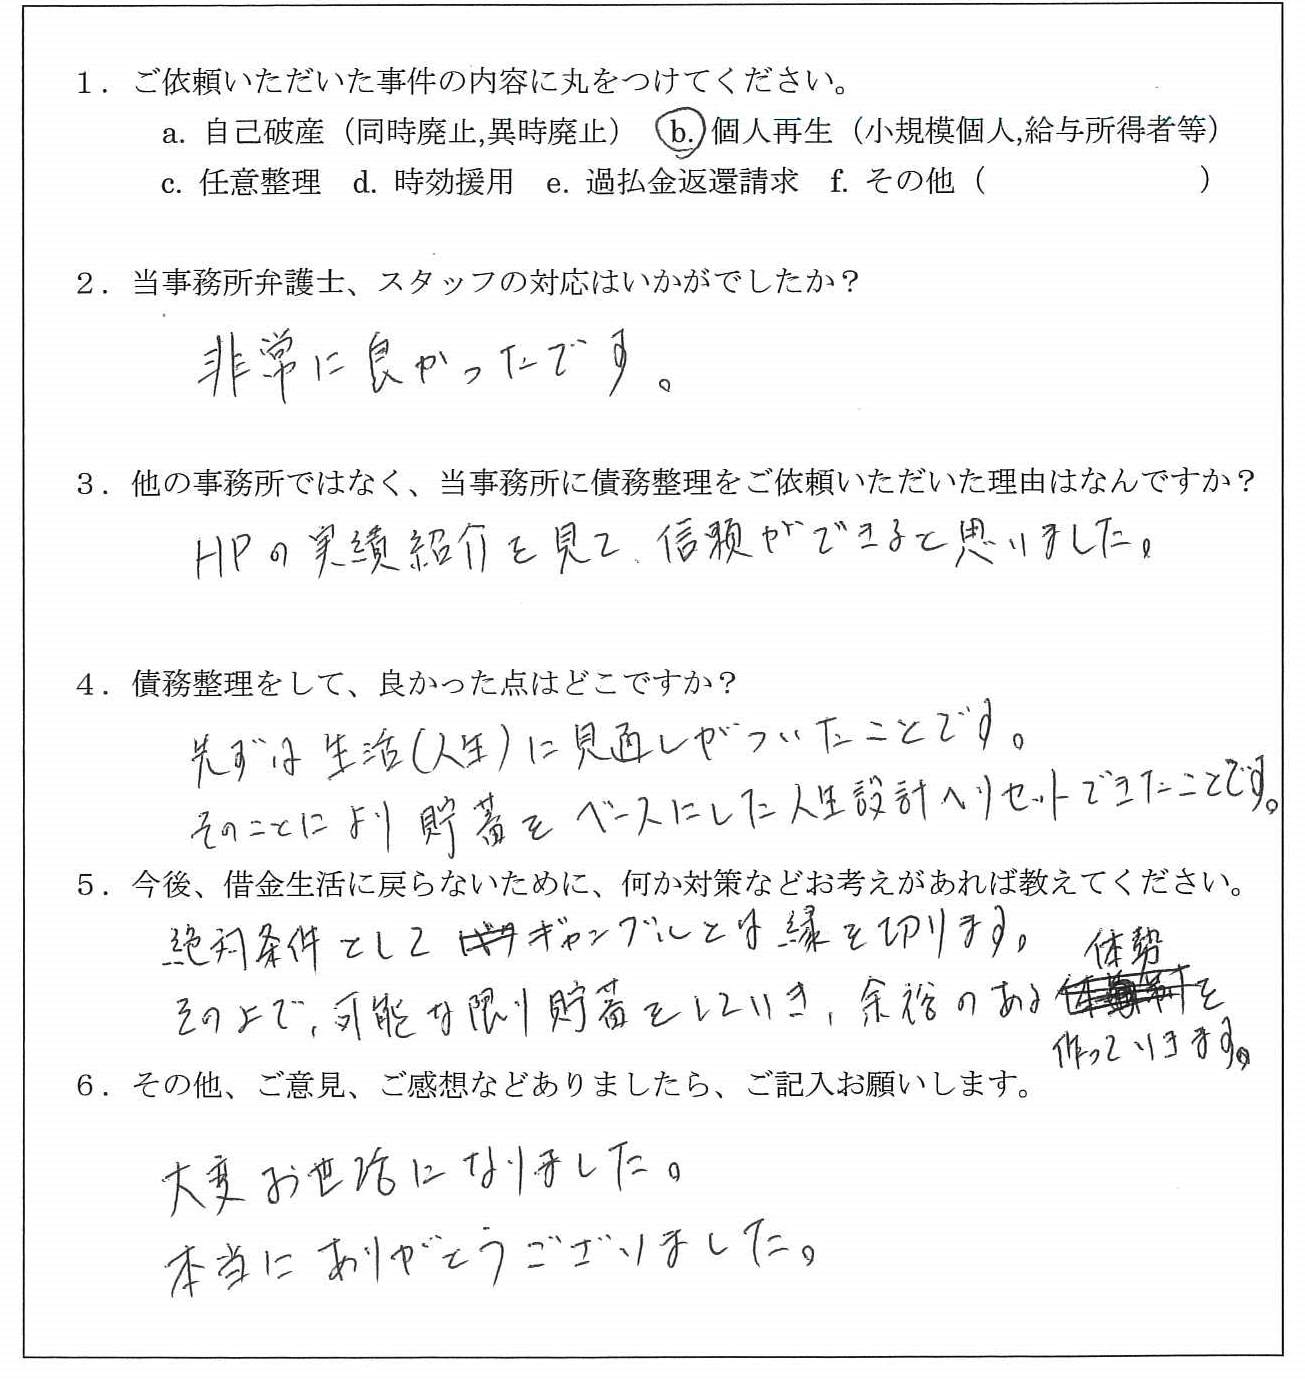 １．ご依頼いただいた事件の内容に丸をつけてください。
a. 自己破産（同時廃止,異時廃止） b. 個人再生（小規模個人,給与所得者等）
c. 任意整理 d. 時効援用 e. 過払金返還請求 f. その他（ ）
２．当事務所弁護士、スタッフの対応はいかがでしたか？
非常に良かったです。
３．他の事務所ではなく、当事務所に債務整理をご依頼いただいた理由はなんですか？
HPの実績紹介を見て、信頼ができると思いました。
４．債務整理をして、良かった点はどこですか？
先ずは生活(人生)に見直しがついたことです。
そのことにより貯蓄をベースにした人生設計へリセットできたことです。
５．今後、借金生活に戻らないために、何か対策などお考えがあれば教えてください。
絶対条件としてギャンブルとは縁を切ります。
その上で、可能な限り貯蓄をしていき、余裕のある体勢を
作っていきます。
６．その他、ご意見、ご感想などありましたら、ご記入お願いします。
大変お世話になりました。
本当にありがとうございました。